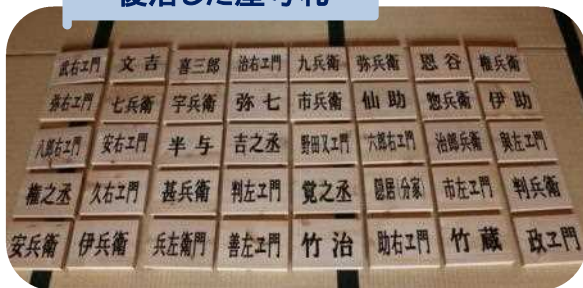 復活した屋号札
武右ヱ門 文吉 喜三郎 治右ヱ門 九兵衛 弥兵衛 恩谷 権兵衛
弥右ヱ門 七兵衛 宇兵衛 弥七 市兵衛 仙助 惣兵衛 伊助
八郎右ヱ門 安右ヱ門 半与 吉之丞 野田又ヱ門 六郎右ヱ門 治郎兵衛 寅左ヱ門
権之丞 久右ヱ門 甚兵衛 判左ヱ門 覚之丞 隠居(分家) 市左ヱ門 判兵衛
安兵衛 伊兵衛 兵左衛門 善左ヱ門 竹治 助右ヱ門 竹蔵 政ヱ門